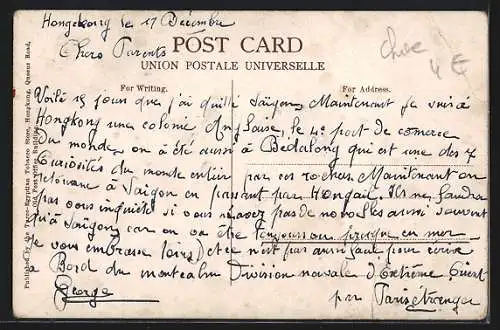 Hongkong le 17 Décembre
Chers Parents
chec
4 €
POST CARD
UNION POSTALE UNIVERSELLE
For Writing.
For Address.
Voilà 15 jours que j'ai quitté Saïgon, Maintenant je suis à
Hongkong une colonie Anglaise, le 4e port de comerce
Du monde, on a été aussi à Bedalong qui est une des 7
Curiosités du monde entier par ces rochers Maintenant on
retourne à Saigon en passant par Hongaiï. Il ne faudra
pas vous inquieté si vous n'avez pas de nouvelles aussi souvent
qu'à Saïgon, car on va être Toujours ou presque en mer
Je vous embrasse loin, et ce n'est pas aussi facile pour écrire
à Bord du montcalm Division navale d'Extrême Orient
George
par Paris étranger
Published by the Turco-Egyptian Tobacco Store, Hongkong, Queens Road,
Old Post Office Building.